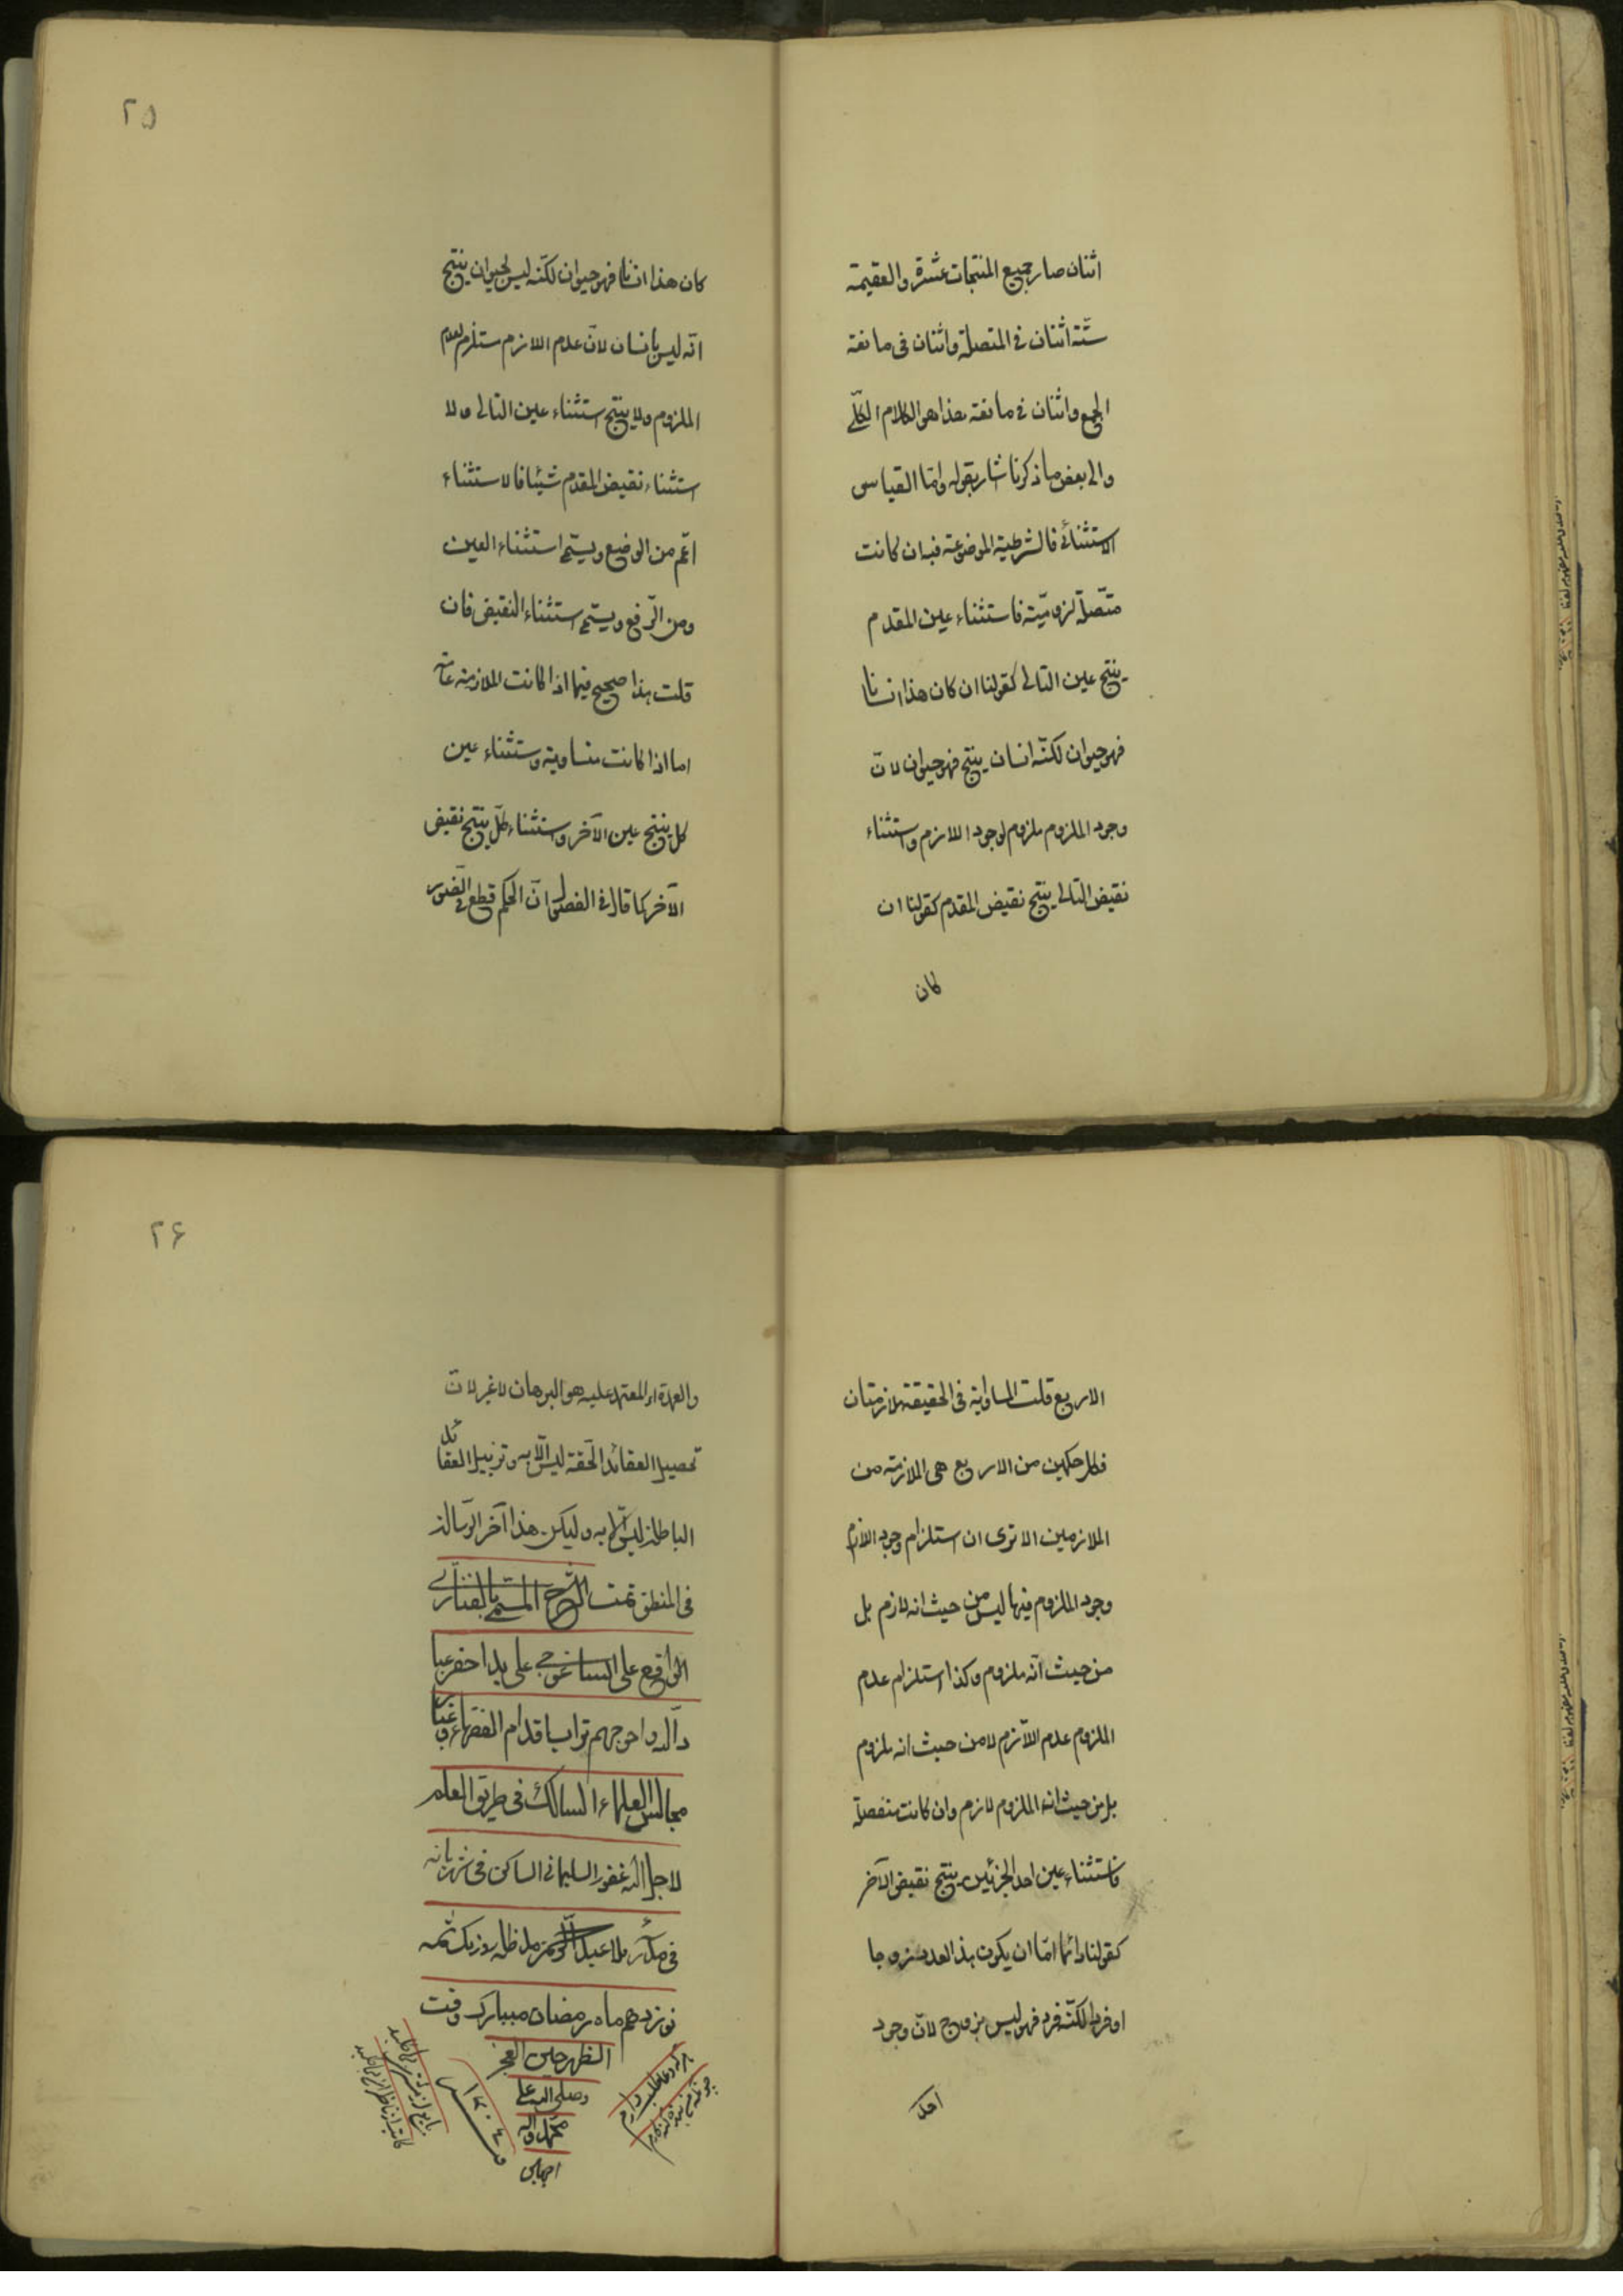 اثنان صار جميع المنتجات عشرة والعقيمة
ستّة اثنان فى المتصلة واثنان فى مانعة
الجمع واثنان فى مانعة هذا هو الكلام الكلّى
والى بعض ما ذكرنا اشار بقوله وامّا القياس
الاستثنائى فالشرطية الموضوعة فيه ان كانت
متّصلة لزوميّة فاستثناء عين المقدم
ينتج عين التالى كقولنا ان كان هذا انسانا
فهو حيوان لكنّه انسان ينتج فهو حيوان لانّ
وجود الملزوم ملزوم لوجود اللازم واستثناء
نقيض التالى ينتج نقيض المقدم كقولنا ان
كان
٢٥
كان هذا انسانا فهو حيوان لكنّه ليس بحيوان ينتج
انّه ليس بانسان لانّ عدم اللازم مستلزم لعدم
الملزوم ولا ينتج استثناء عين التالى ولا
استثناء نقيض المقدم شيئا فالاستثناء
اعّم من الوضع ويسمّى استثناء العين
ومن الرّفع ويسمّى استثناء النقيض فان
قلت هذا صحيح فيما اذا كانت الملازمة عامّة
اما اذا كانت متساوية واستثناء عين
كل ينتج عين الآخر واستثناء كلّ ينتج نقيض
الآخر كما قال فى الفصول انّ الحكم قطع فى الصّور
الاربع قلت المساواية فى الحقيقة ملازمتان
فكل حكمين من الاربع هى الملازمة من
الملازمين الا ترى ان استلزام وجود اللازم
وجود الملزوم فيها ليس من حيث انه لازم بل
من حيث انّه ملزوم وكذا استلزام عدم
الملزوم عدم اللّازم لا من حيث انه ملزوم
بل من حيث انه الملزوم لازم وان كانت منفصلة
فاستثناء عين احد الجزئين ينتج نقيض الآخر
كقولنا دائما امّا ان يكون هذا العدد زوجا
او فردا لكنّه فرد فهو ليس بزوج لانّ وجود
احد
٢۶
والعمدة اى المعتمد عليه هو البرهان لا غير لانّ
تحصيل العقائد الحّقة ليس الّا به وتزييل العقائد
الباطلة ليس الّا به وليكن هذا آخر الرّسالة
فى المنطق تمت الشرح المسمّى بالفنارى
الواقع على ايساغوجى على يد احقر عبا
د اللّه واحوجهم تراب اقدام الفقهاء وغبار
مجالس العلماء السالك فى طريق العلم
لاجل اللّه غفور السليمانى الساكن فى شهر بانه
فى مدرس ملا عبد الكريم مد ظله روز يك شمه
نوزدهم ماه رمضان مبارك وقت
الظهر حين العجز
وصلى اللّه على
محمد وآله
اجمعين
هر كه خواند دعا طمع دارم